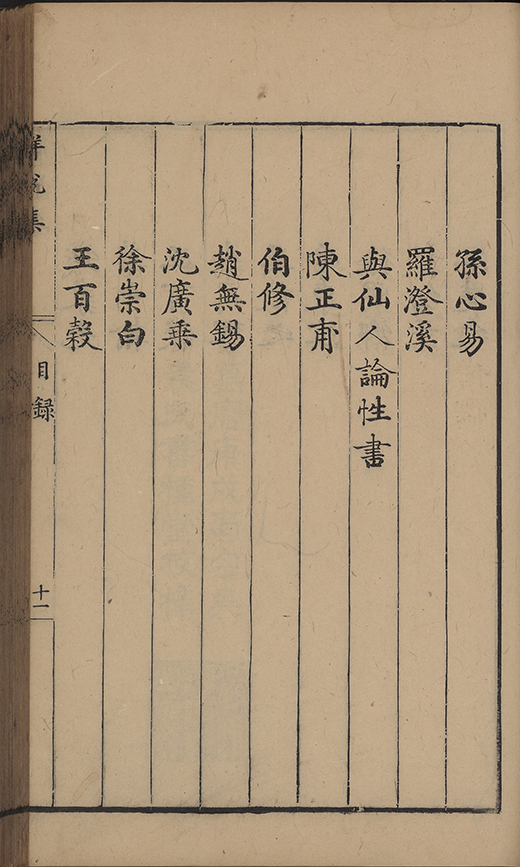 孫心易
羅澄溪
與仙人論性書
陳正甫
伯修
趙無錫
沈廣乗
徐崇白
王百榖
目録
十一